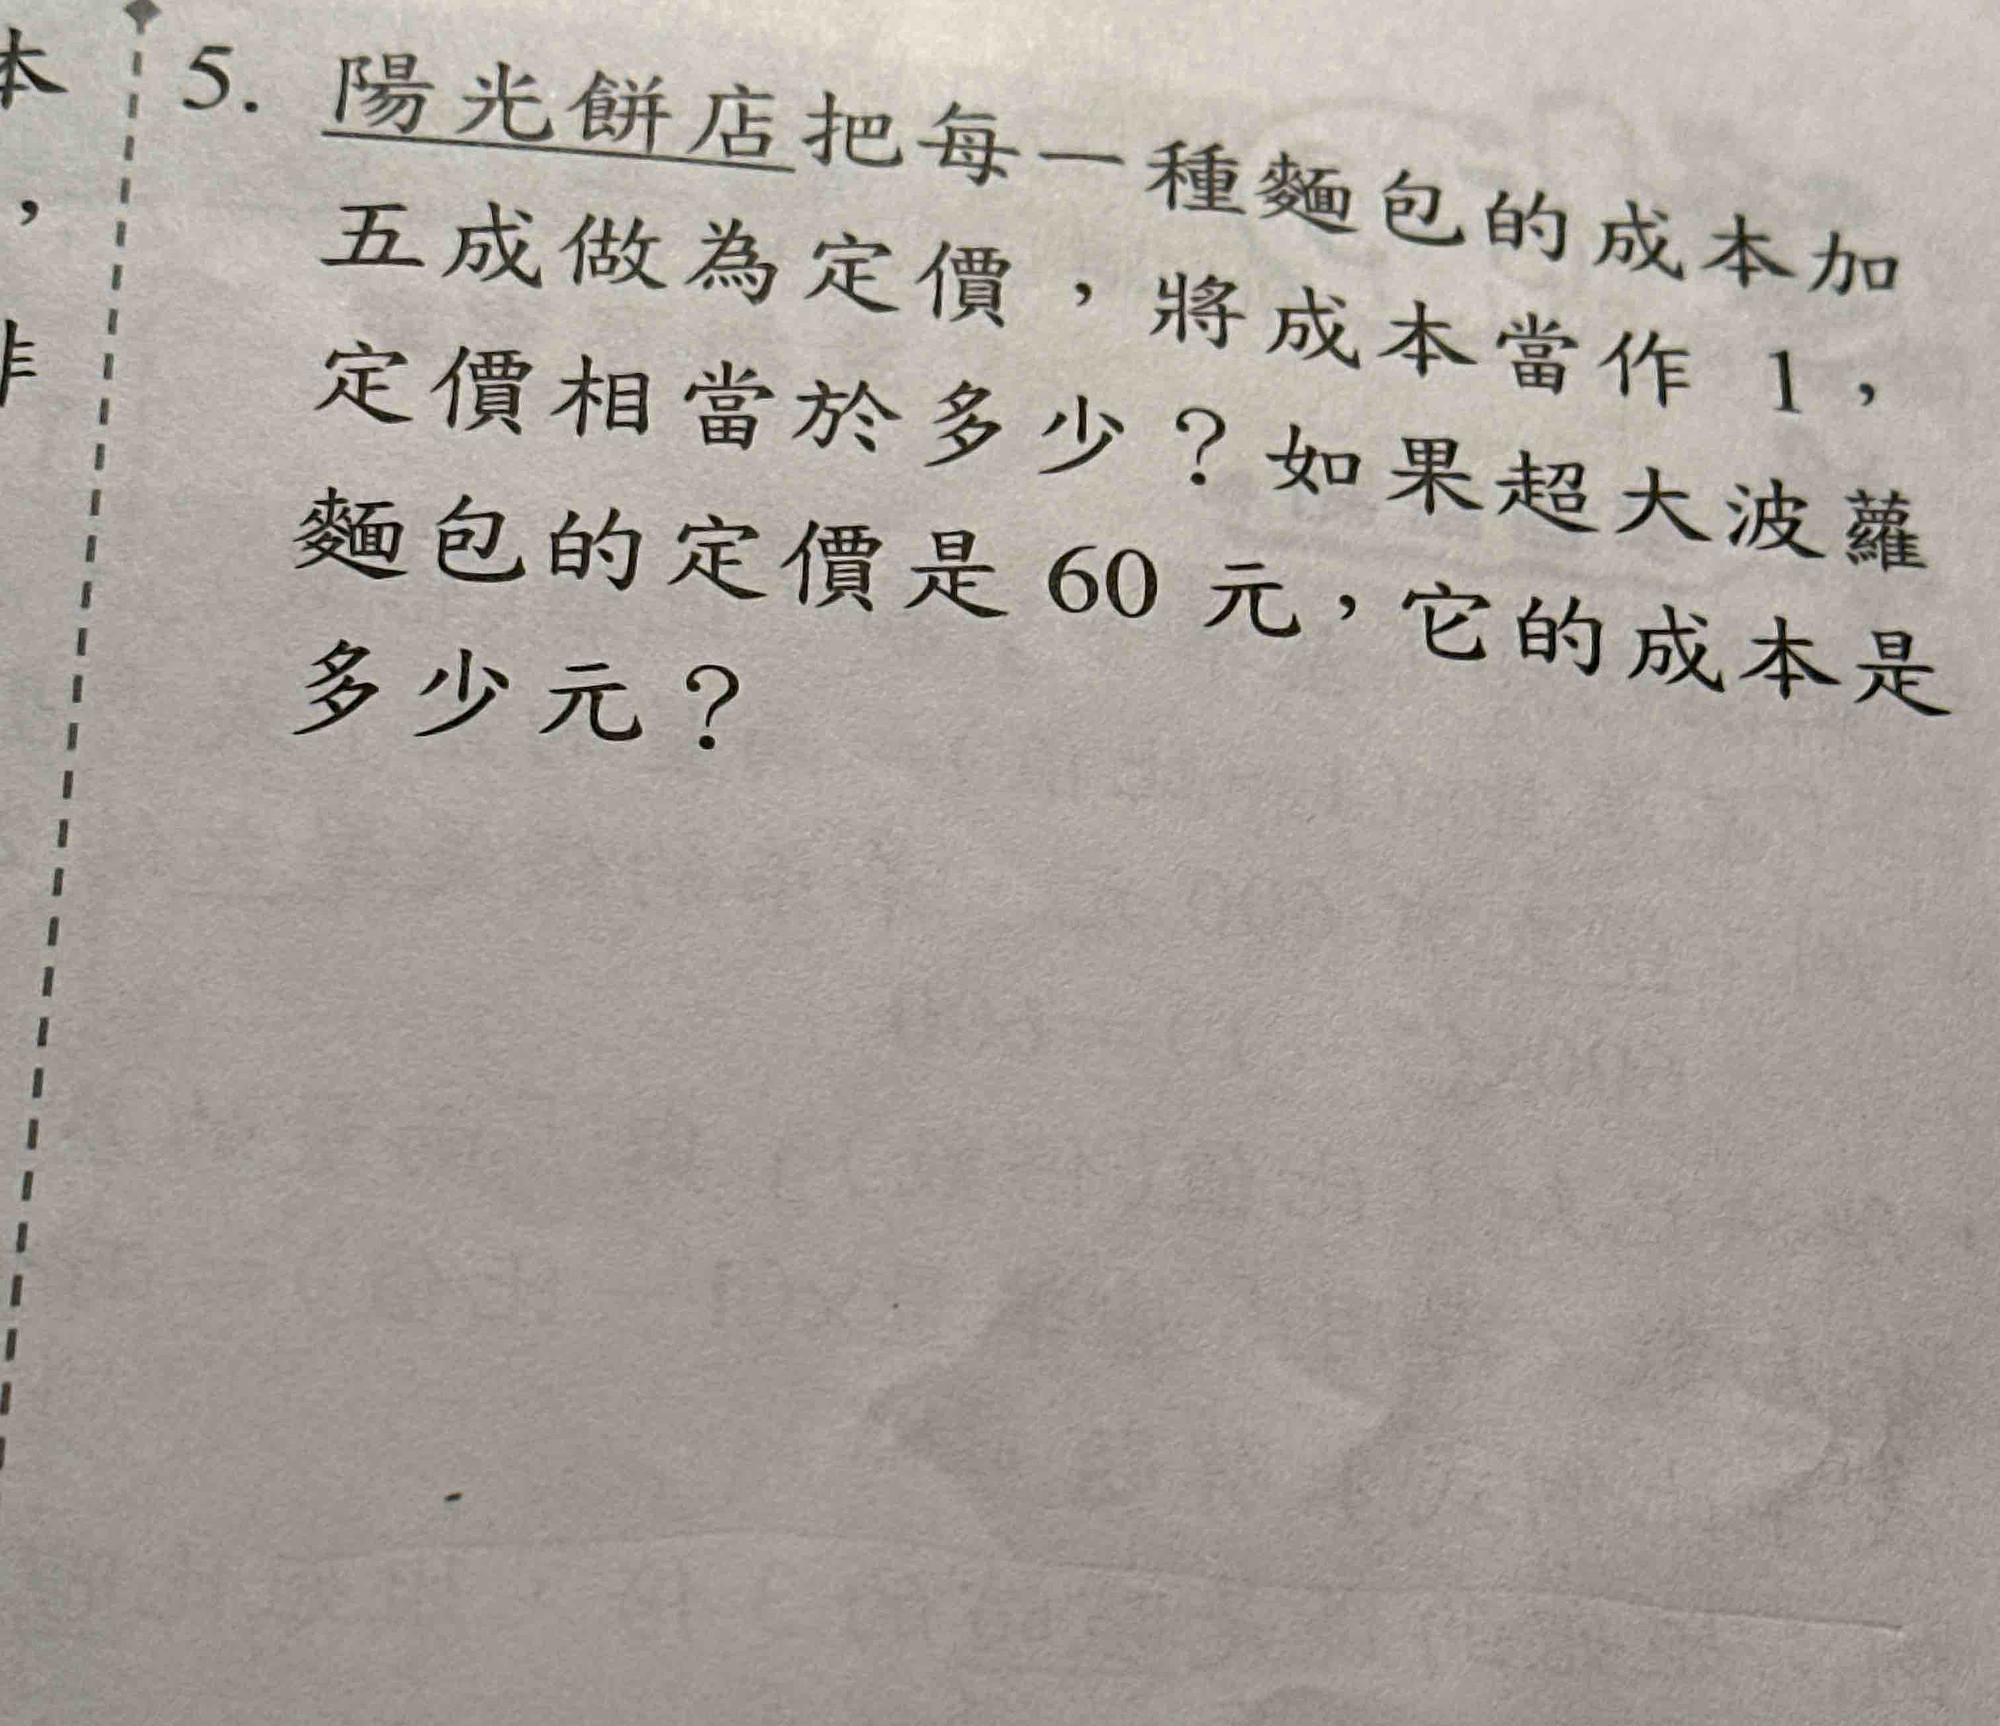 本
，
5. 陽光餅店把每一種麵包的成本加
五成做為定價，將成本當作 1，
定價相當於多少？如果超大波蘿
麵包的定價是 60 元，它的成本是
多少元？